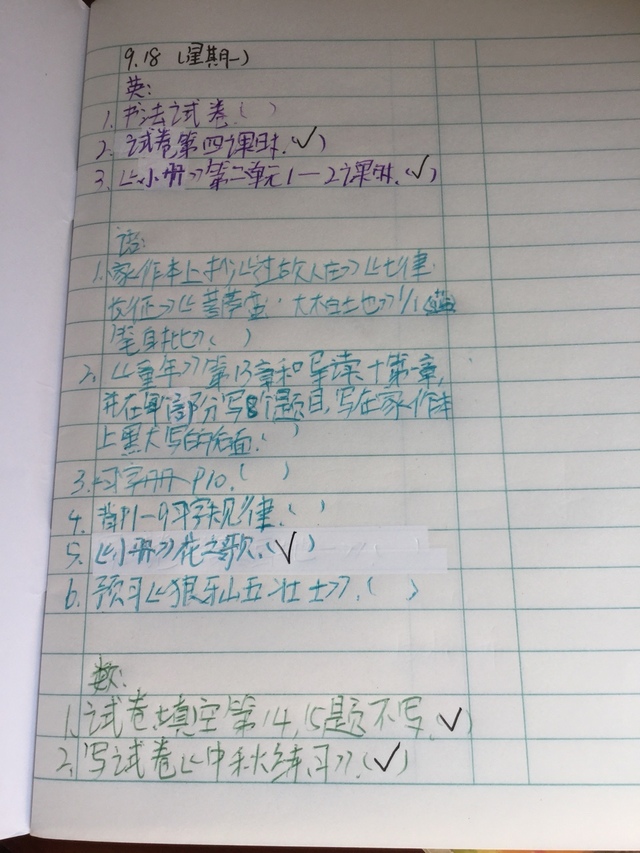 9.18 (星期一)
英:
1.书法试卷.( )
2.试卷第四课时.(√)
3.《小册》第二单元1—2课时.(√)
语:
1.家作本上抄《过故人庄》《七律·
长征》《菩萨蛮·大柏地》1/1
笔自批.( )
2.《童年》第13章和导读+第一章,
并在每部分写8个题目,写在家作本
上默大写的后面.( )
3.习字册P10.( )
4.背P1—9习字规律.( )
5.《小册》花之歌.(√)
6.预习《狼牙山五壮士》.( )
数:
1.试卷填空第14,15题不写.(√)
2.写试卷《中秋练习》.(√)